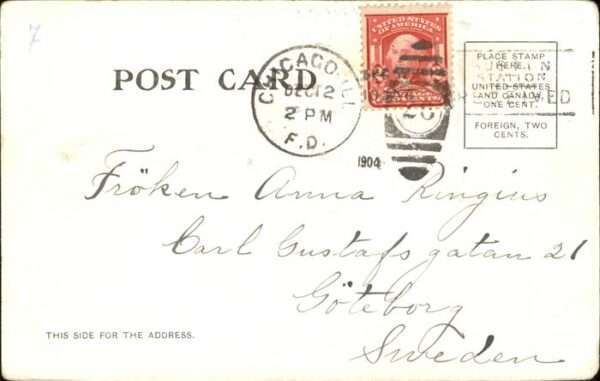 7
UNITED STATES
OF AMERICA
POST CARD
CHICAGO, ILL.
DEC 12
2 PM
F.D.
1904
26
PLACE STAMP
HERE.
STATION
UNITED STATES
AND CANADA,
ONE CENT.
FOREIGN, TWO
CENTS.
Fröken Anna Ringius
Carl Gustafs gatan 21
Göteborg
THIS SIDE FOR THE ADDRESS.
Sweden